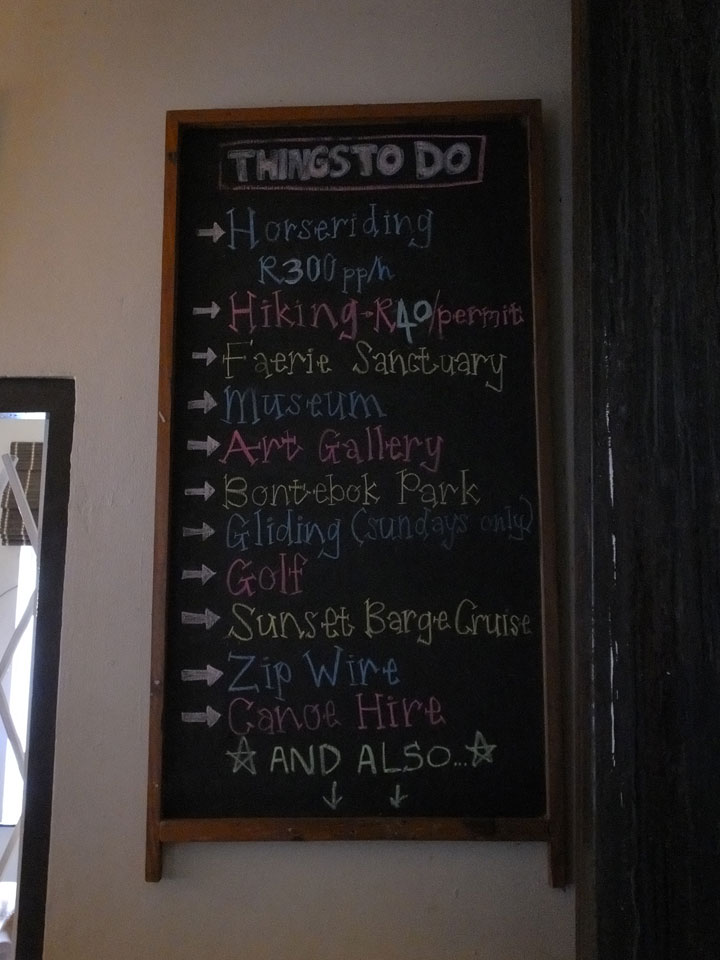 THINGS TO DO
→ Horseriding
R300 pp/h
→ Hiking-R40/permit
→ Faerie Sanctuary
→ Museum
→ Art Gallery
→ Bontebok Park
→ Gliding (sundays only)
→ Golf
→ Sunset Barge Cruise
→ Zip Wire
→ Canoe Hire
☆ AND ALSO...☆
↓ ↓